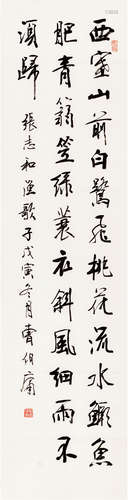 西塞山前白鷺飛桃花流水鱖魚
肥青箬笠綠蓑衣斜風細雨不
須歸 張志和漁歌子戊寅冬月曹伯庸